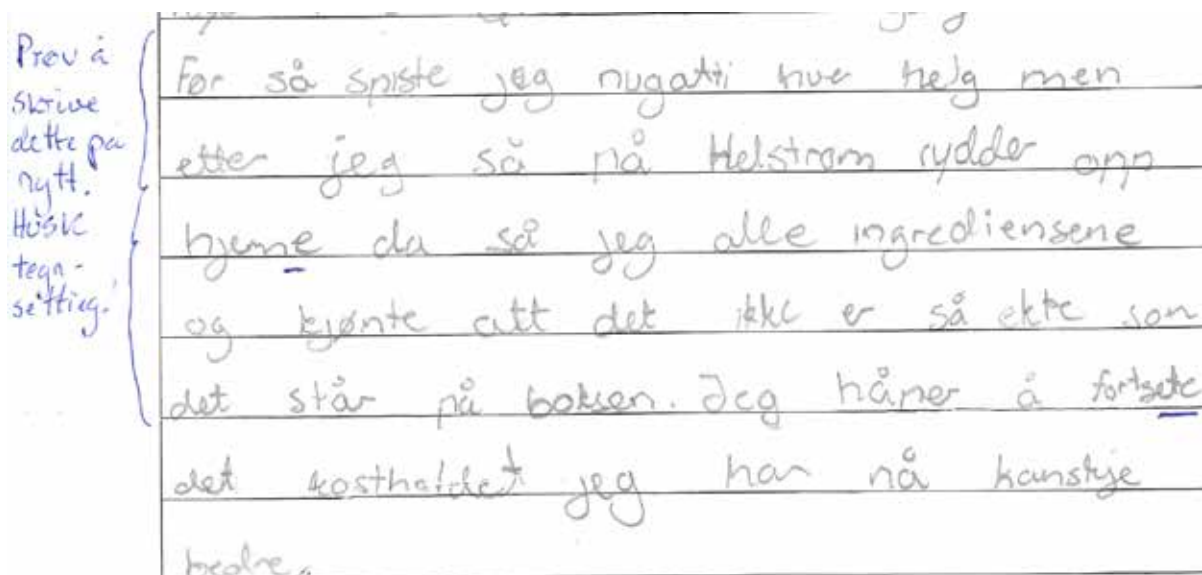 Prøv å
skrive
dette på
nytt.
Husk
tegn-
setting.
Før så spiste jeg nugatti hve helg men
etter jeg så på Helstrøm rydder opp
hjemne da så jeg alle ingrediensene
og kjønte att det ikke er så ekte som
det står på boksen. Jeg håper å fortsete
det kostholdet jeg har nå kanskje
bedre.